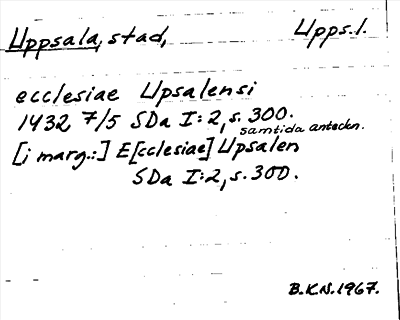 Uppsala, stad, Upps. l.
ecclesiae Upsalensi
1432 7/5 SDa I:2, s. 300.
samtida anteckn.
[i marg.:] E[cclesiae] Upsalen
SDa I:2, s. 300.
B.K.N. 1967.